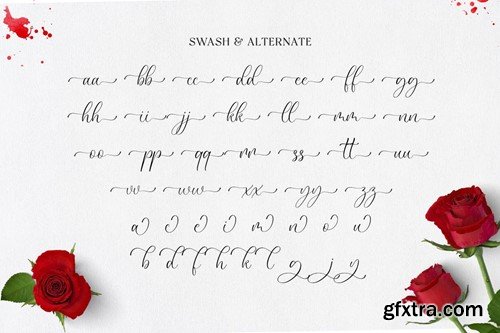 SWASH & ALTERNATE
aa bb cc dd ee ff gg
hh ii jj kk ll mm nn
oo pp qq rr ss tt uu
vv ww xx yy zz
a c e i m n o u
b d f h k l g j y
gfxtra.com